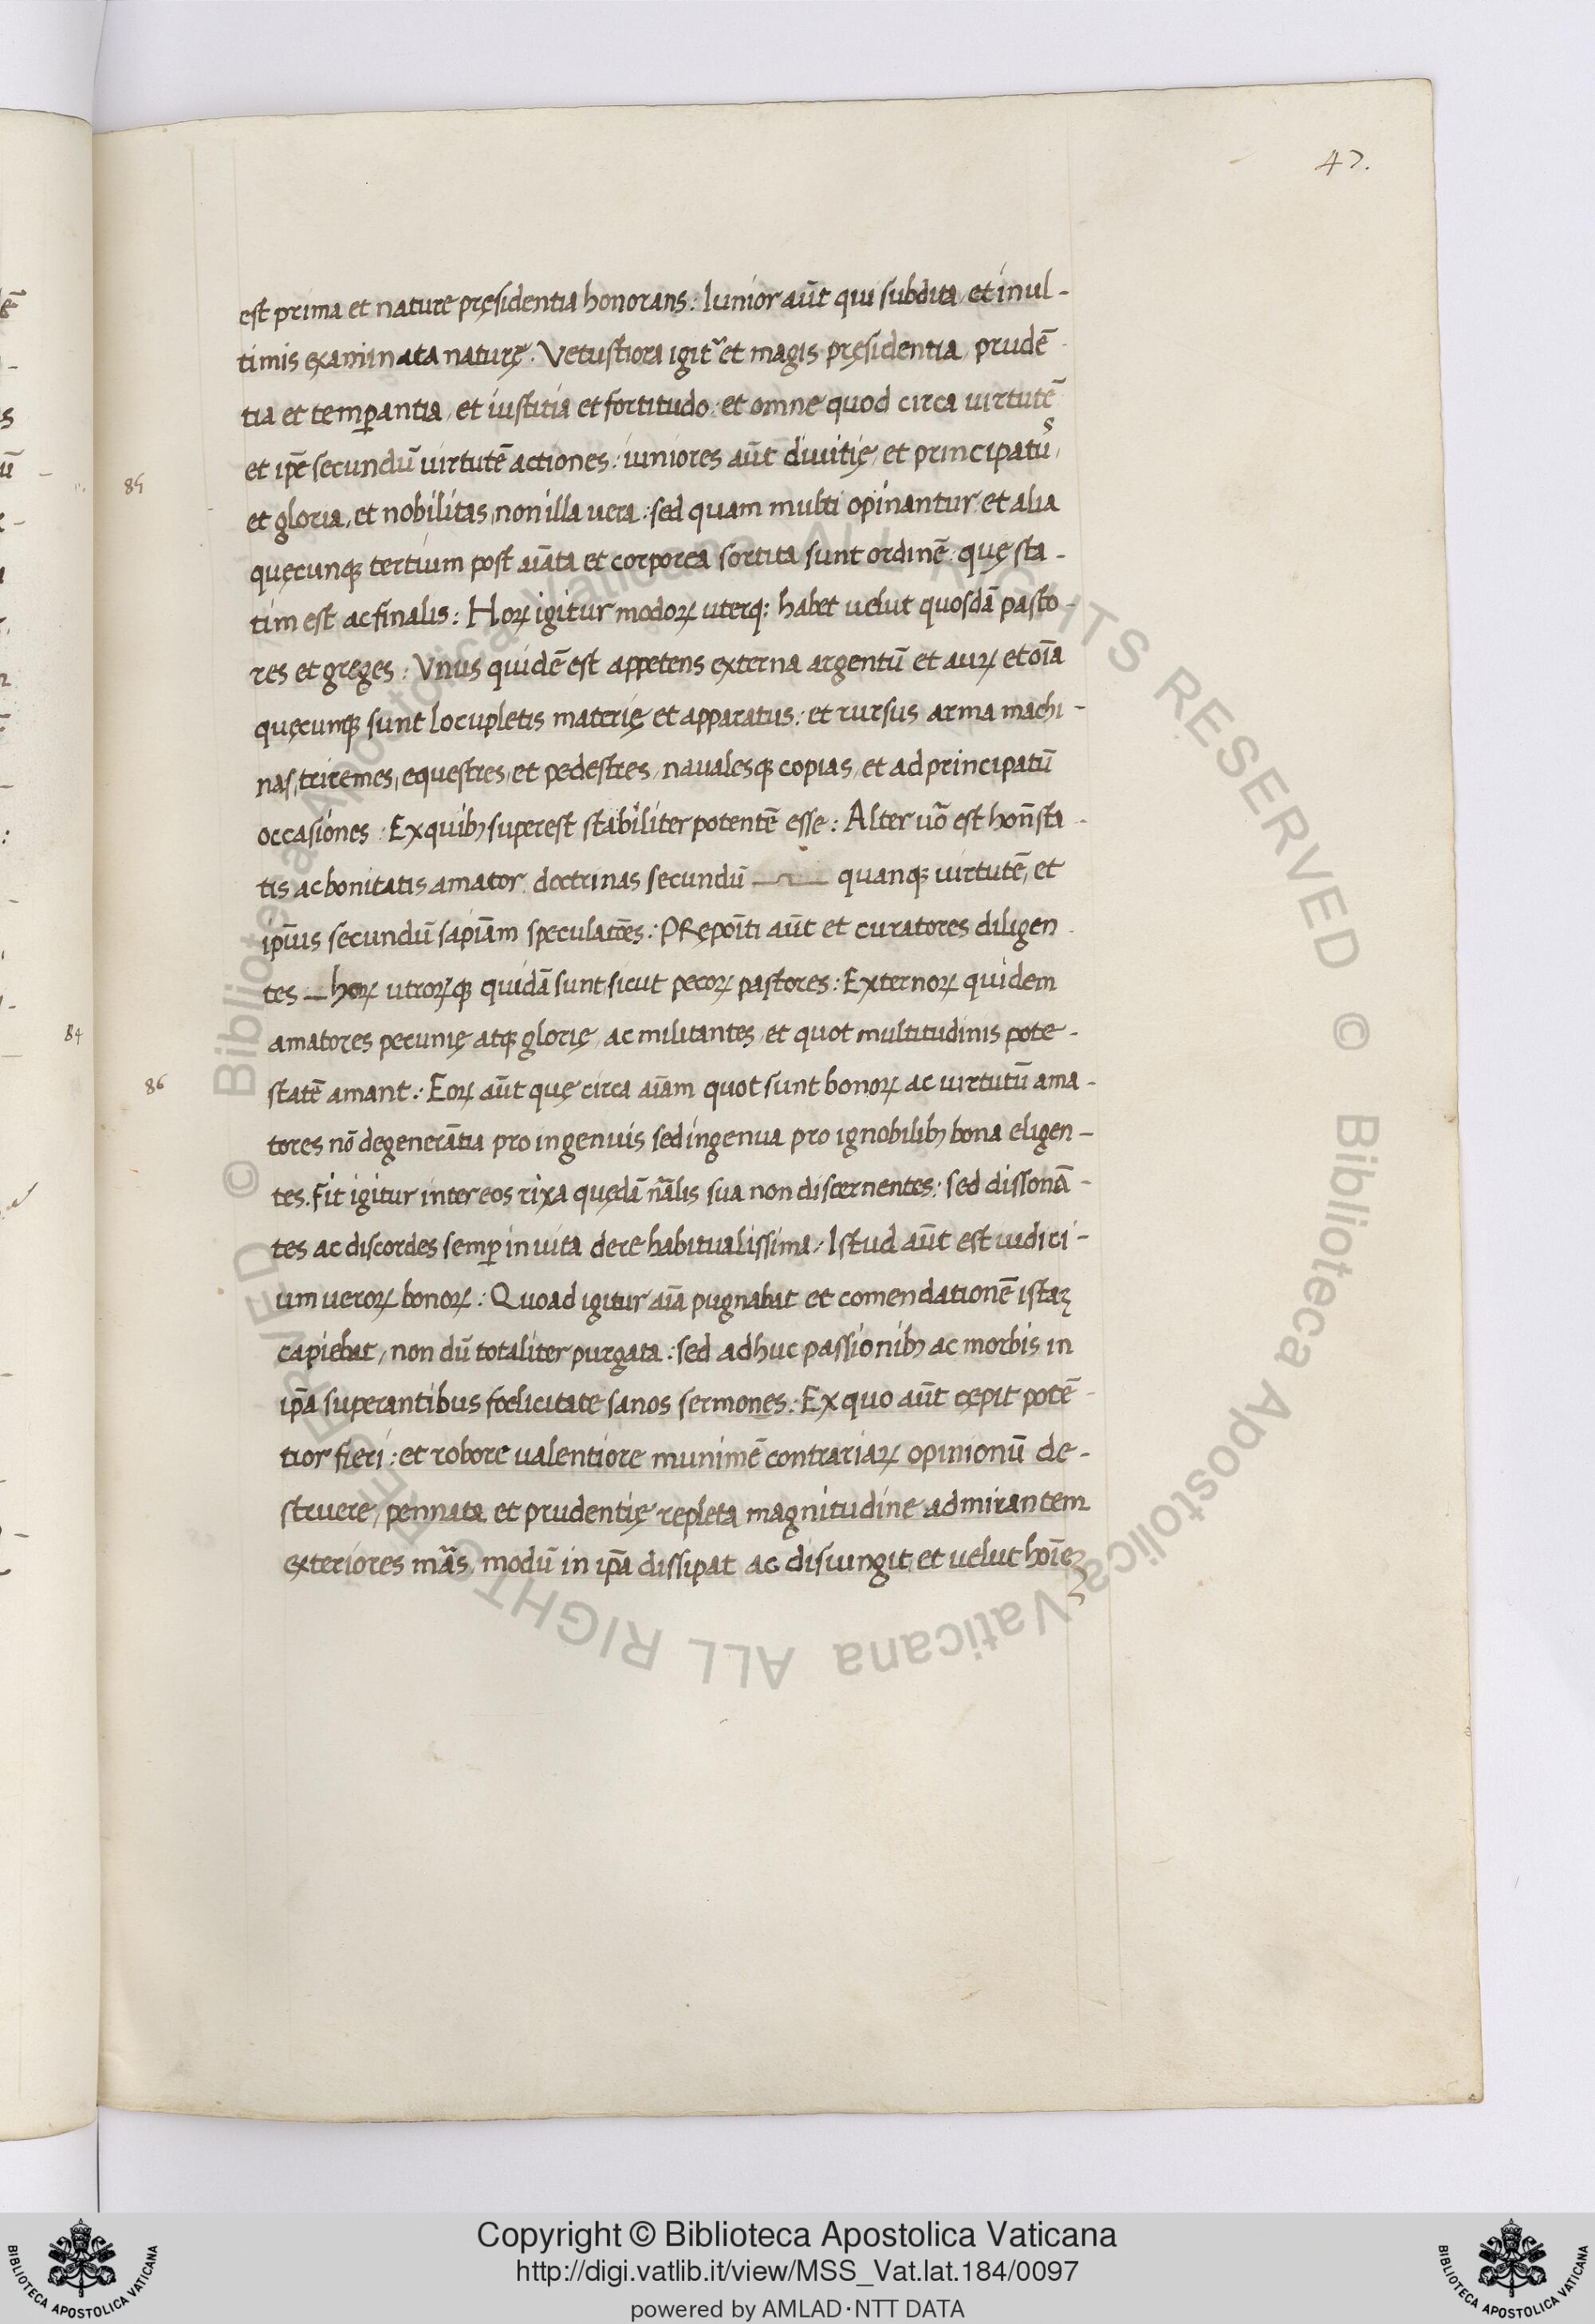 47.
est prima et nature pręsidentia honorans: Iunior aūt qui subdita et in ul-
timis examinata naturę. Vetustiora igitᷣ et magis pręsidentia prudē
tia et temꝑantia et iustitia et fortitudo: et omne quod circa uirtutē
et ip̄e secundū uirtutē actiones: iuniores aūt diuitię, et principatus
85
et gloria, et nobilitas, non illa uera: sed quam multi opinantur et alia
quęcunqꝫ tertium post aīata et corporea sortita sunt ordinē: quę sta-
tim est ac finalis: Hoꝝ igitur modoꝝ uterqꝫ habet uelut quosdā pasto-
res et greges: Vnus quidē est appetens externa argentū et auꝝ et oīa
quęcunqꝫ sunt locupletis materię et apparatus: et rursus arma machi-
nas, triremes, equestres, et pedestres, naualesqꝫ copias, et ad principatū
occasiones: Ex quibꝫ superest stabiliter potentē esse: Alter uō est hon̄sta
tis ac bonitatis amator doctrinas secundū quanqꝫ uirtutē, et
ip̄ius secundū sapiām speculatōes: PRępoīti aūt et curatores diligen
tes hoꝝ utroꝝqꝫ quidā sunt sicut pecoꝝ pastores: Externoꝝ quidem
84
amatores pecunię atqꝫ glorię, ac militantes, et quot multitudinis pote-
86
statē amant: Eoꝝ aūt quę circa aīam quot sunt bonoꝝ ac uirtutū ama-
tores nō degenerātia pro ingenuis sed ingenua pro ignobilibꝫ bona eligen-
tes. Fit igitur inter eos rixa quędā nālis sua non discernentes: sed dissonā-
tes ac discordes semꝑ in uita de re habitualissima, Istud aūt est iudici-
um ueroꝝ bonoꝝ: Quoad igitur aīa pugnabat et comendationē istaꝝ
capiebat, non dū totaliter purgata: sed adhuc passionibꝫ ac morbis in
ip̄a superantibus fœlicitate sanos sermones: Ex quo aūt cępit potē-
tior fieri: et robore ualentiore munimē contrariaꝝ opinionū de-
struere, pennata et prudentię repleta magnitudine admirantem
exteriores mās, modū in ip̄a dissipat ac disiungit, et uelut hoīeꝫ
© Biblioteca Apostolica Vaticana ALL RIGHTS RESERVED © Biblioteca Apostolica Vaticana ALL RIGHTS RESERVED
Copyright © Biblioteca Apostolica Vaticana
http://digi.vatlib.it/view/MSS_Vat.lat.184/0097
powered by AMLAD·NTT DATA
BIBLIOTECA APOSTOLICA VATICANA
BIBLIOTECA APOSTOLICA VATICANA